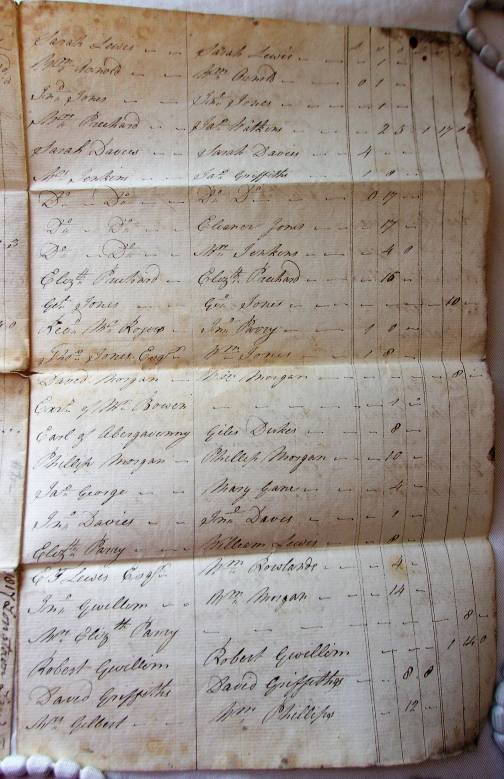 Sarah Lewis — — Sarah Lewis — 1 0 0
Wm Arnold — — Wm Arnold — — 1 —
Jno Jones — — Jno Jones — — 1 —
Wm Prichard — — Jas Watkins — — 2 5 1 17
Sarah Davies — — Sarah Davies — 4
Wm Jenkins — — Jas Griffiths — 1 8 —
Do — Do — — Do Do — — 0 17 —
Do — Do — Eleanor Jones — — 17 —
Do — Do — Wm Jenkins — — 4 0
Elizth Prichard — Elizth Prichard — — 16 —
Geo Jones — Geo Jones — — — — — 10 —
Revd Mr Rogers — Jno Parry — — 1 0 —
Thos Jones Esqr — Wm Jones — 1 8 —
David Morgan — Morgan — — — — — 8 —
Exrs of Mr Bowen — — — — — 1 —
Earl of Abergavenny Giles Dukes — — 8 —
Phillip Morgan — Phillip Morgan — — 10 —
Jas George — — Mary Game — — 4 —
Jno Davies — — Jno Davies — — 1 —
Elizth Parry — William Lewis — — 8 —
E F Lewis Esqr — Wm Rowlands — 4 —
Jno Gwillom — — Wm Morgan — — 14 —
Mrs Elizth Parry — — — — — 8 —
Robert Gwillim Robert Gwillim — — 1
David Griffiths David Griffiths — 8 8
Mrs Gilbert — — Wm Phillips — 12 —